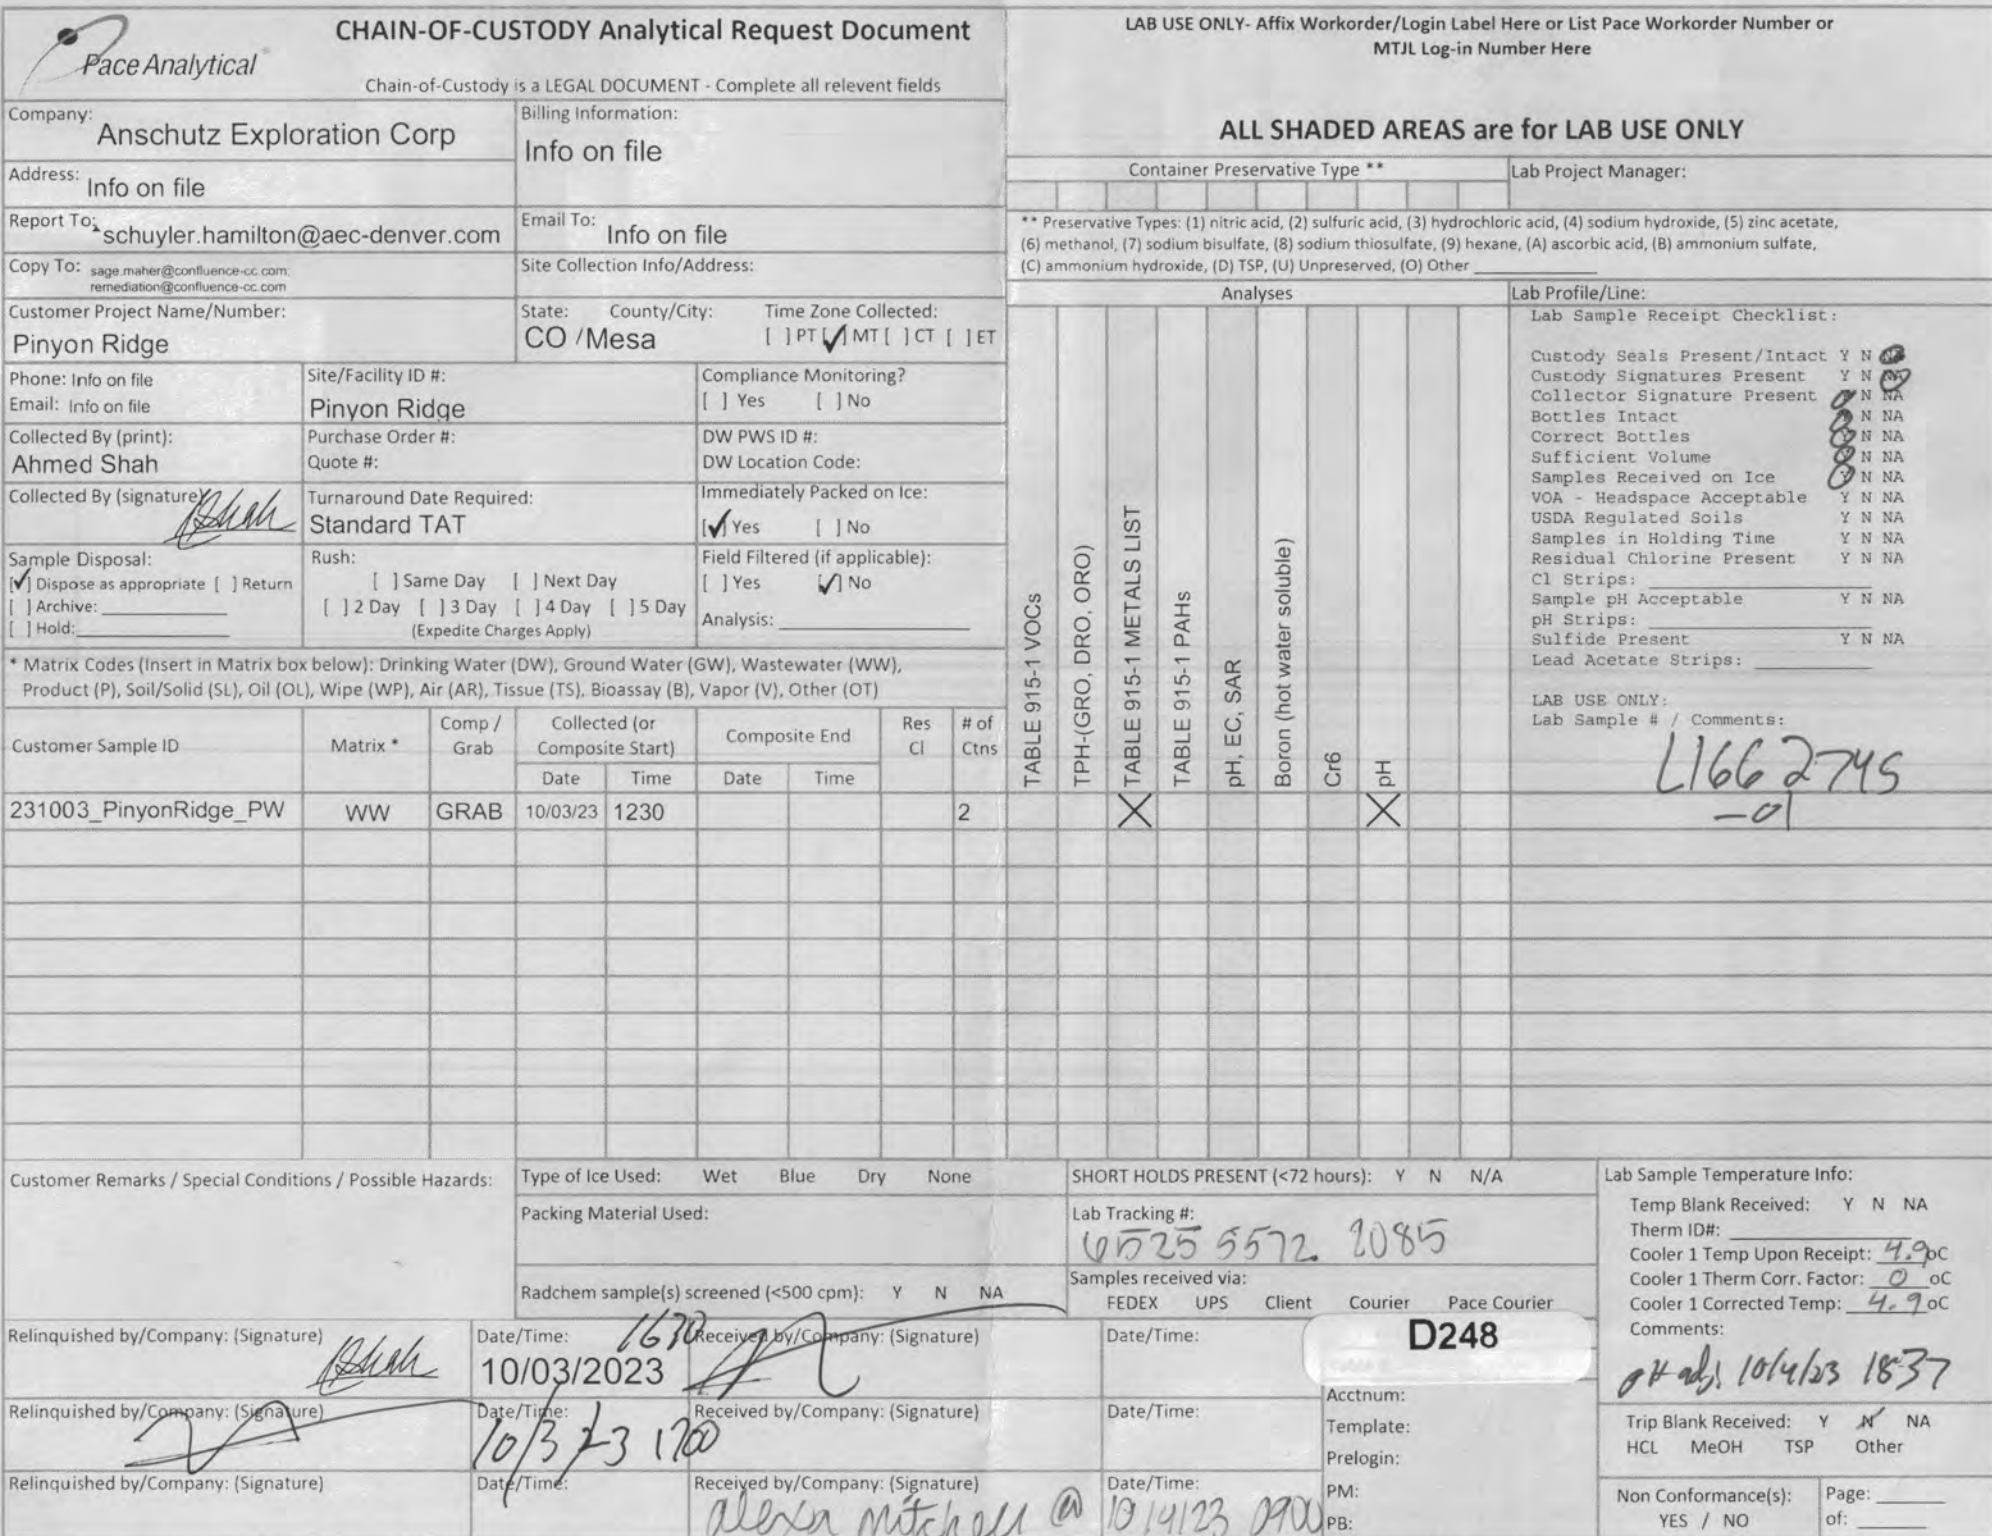 Pace Analytical
CHAIN-OF-CUSTODY Analytical Request Document
Chain-of-Custody is a LEGAL DOCUMENT - Complete all relevent fields
LAB USE ONLY- Affix Workorder/Login Label Here or List Pace Workorder Number or
MTJL Log-in Number Here
ALL SHADED AREAS are for LAB USE ONLY
Company: Anschutz Exploration Corp
Billing Information:
Info on file
Address: Info on file
Report To: schuyler.hamilton@aec-denver.com
Email To: Info on file
Copy To: sage.maher@confluence-cc.com;
remediation@confluence-cc.com
Site Collection Info/Address:
Customer Project Name/Number:
Pinyon Ridge
State: County/City: Time Zone Collected:
CO / Mesa [ ] PT [✓] MT [ ] CT [ ] ET
Phone: Info on file
Email: Info on file
Site/Facility ID #:
Pinyon Ridge
Compliance Monitoring?
[ ] Yes [ ] No
Collected By (print):
Ahmed Shah
Purchase Order #:
Quote #:
DW PWS ID #:
DW Location Code:
Collected By (signature)
Turnaround Date Required:
Standard TAT
Immediately Packed on Ice:
[✓] Yes [ ] No
Sample Disposal:
[✓] Dispose as appropriate [ ] Return
[ ] Archive:
[ ] Hold:
Rush:
[ ] Same Day [ ] Next Day
[ ] 2 Day [ ] 3 Day [ ] 4 Day [ ] 5 Day
(Expedite Charges Apply)
Field Filtered (if applicable):
[ ] Yes [✓] No
Analysis:
* Matrix Codes (Insert in Matrix box below): Drinking Water (DW), Ground Water (GW), Wastewater (WW),
Product (P), Soil/Solid (SL), Oil (OL), Wipe (WP), Air (AR), Tissue (TS), Bioassay (B), Vapor (V), Other (OT)
Container Preservative Type **
Lab Project Manager:
** Preservative Types: (1) nitric acid, (2) sulfuric acid, (3) hydrochloric acid, (4) sodium hydroxide, (5) zinc acetate,
(6) methanol, (7) sodium bisulfate, (8) sodium thiosulfate, (9) hexane, (A) ascorbic acid, (B) ammonium sulfate,
(C) ammonium hydroxide, (D) TSP, (U) Unpreserved, (O) Other
Analyses
TABLE 915-1 VOCs
TPH-(GRO, DRO, ORO)
TABLE 915-1 METALS LIST
TABLE 915-1 PAHs
pH, EC, SAR
Boron (hot water soluble)
Cr6
pH
Lab Profile/Line:
Lab Sample Receipt Checklist:
Custody Seals Present/Intact Y N NA
Custody Signatures Present Y N NA
Collector Signature Present Y N NA
Bottles Intact Y N NA
Correct Bottles Y N NA
Sufficient Volume Y N NA
Samples Received on Ice Y N NA
VOA - Headspace Acceptable Y N NA
USDA Regulated Soils Y N NA
Samples in Holding Time Y N NA
Residual Chlorine Present Y N NA
Cl Strips:
Sample pH Acceptable Y N NA
pH Strips:
Sulfide Present Y N NA
Lead Acetate Strips:
LAB USE ONLY:
Lab Sample # / Comments:
L1662745
-01
Customer Sample ID
Matrix *
Comp /
Grab
Collected (or
Composite Start)
Composite End
Res
Cl
# of
Ctns
Date Time Date Time
231003_PinyonRidge_PW WW GRAB 10/03/23 1230 2 X X
Customer Remarks / Special Conditions / Possible Hazards:
Type of Ice Used: Wet Blue Dry None
Packing Material Used:
Radchem sample(s) screened (<500 cpm): Y N NA
SHORT HOLDS PRESENT (<72 hours): Y N N/A
Lab Tracking #:
6525 5572 2085
Samples received via:
FEDEX UPS Client Courier Pace Courier
Lab Sample Temperature Info:
Temp Blank Received: Y N NA
Therm ID#:
Cooler 1 Temp Upon Receipt: 4.9 oC
Cooler 1 Therm Corr. Factor: 0 oC
Cooler 1 Corrected Temp: 4.9 oC
Comments:
pH adj. 10/4/23 1837
Relinquished by/Company: (Signature)
Date/Time: 1630
10/03/2023
Received by/Company: (Signature)
Date/Time:
D248
Relinquished by/Company: (Signature)
Date/Time:
10/3/23 1700
Received by/Company: (Signature)
Date/Time:
Acctnum:
Template:
Prelogin:
PM:
PB:
Trip Blank Received: Y N NA
HCL MeOH TSP Other
Relinquished by/Company: (Signature)
Date/Time:
Received by/Company: (Signature)
alexa mitchell @
Date/Time:
10/4/23 0900
Non Conformance(s):
YES / NO
Page:
of: